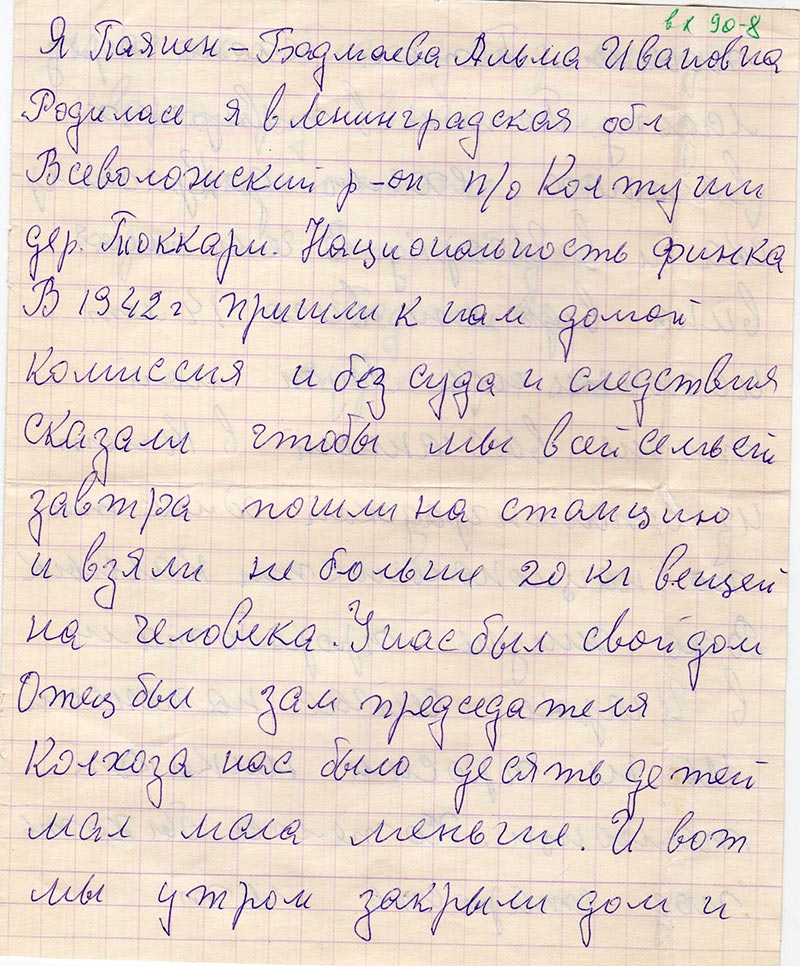 вх 90-8
Я Паянен-Бадмаева Альма Ивановна
Родилась я в Ленинградская обл
Всеволожский р-он п/о Колтуши
дер. Токкари. Национальность финка
В 1942 г пришли к нам домой
комиссия и без суда и следствия
сказали чтобы мы всей семьей
завтра пошли на станцию
и взяли не больше 20 кг вещей
на человека. У нас был свой дом
Отец был зам председателя
Колхоза нас было десять детей
мал мала меньше. И вот
мы утром закрыли дом и